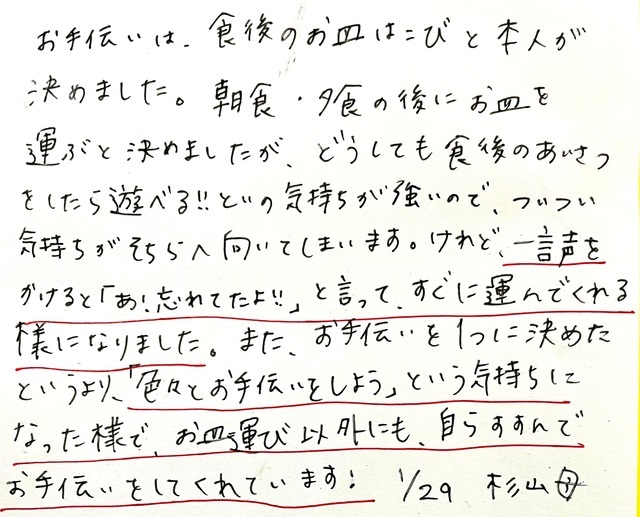 お手伝いは、食後のお皿はこびと本人が
決めました。朝食・夕食の後にお皿を
運ぶと決めましたが、どうしても食後のあいさつ
をしたら遊べる!!といの気持ちが強いので、ついつい
気持ちがそちらへ向いてしまいます。けれど、一言声を
かけると「あ!忘れてたよ!!」と言って、すぐに運んでくれる
様になりました。また、お手伝いを1つに決めた
というより、「色々とお手伝いをしよう」という気持ちに
なった様で、お皿運び以外にも、自らすすんで
お手伝いをしてくれています! 1/29 杉山母